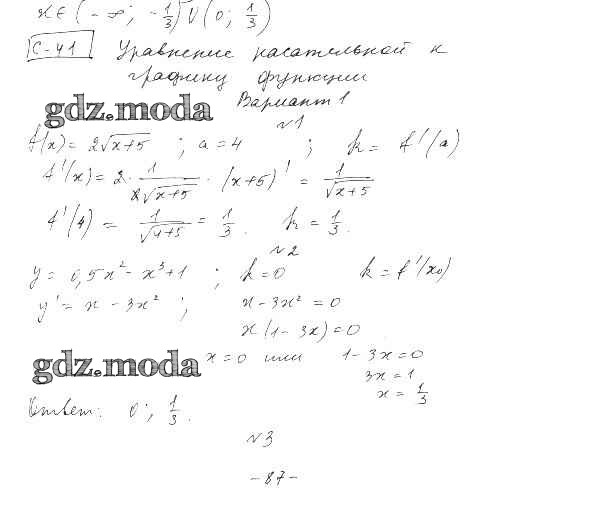 x ∈ (-∞; -1/3) ∪ (0; 1/3)
С-41 Уравнение касательной к
графику функции
gdz.moda Вариант 1
№1
f(x) = 2√x+5 ; a = 4 ; k = f'(a)
f'(x) = 2 · 1/2√x+5 · (x+5)' = 1/√x+5
f'(4) = 1/√4+5 = 1/3. k = 1/3.
№2
y = 0,5x² - x³ + 1 ; k = 0 k = f'(x₀)
y' = x - 3x² ; x - 3x² = 0
x(1 - 3x) = 0
gdz.moda x = 0 или 1 - 3x = 0
3x = 1
x = 1/3
Ответ: 0; 1/3.
№3
- 87 -